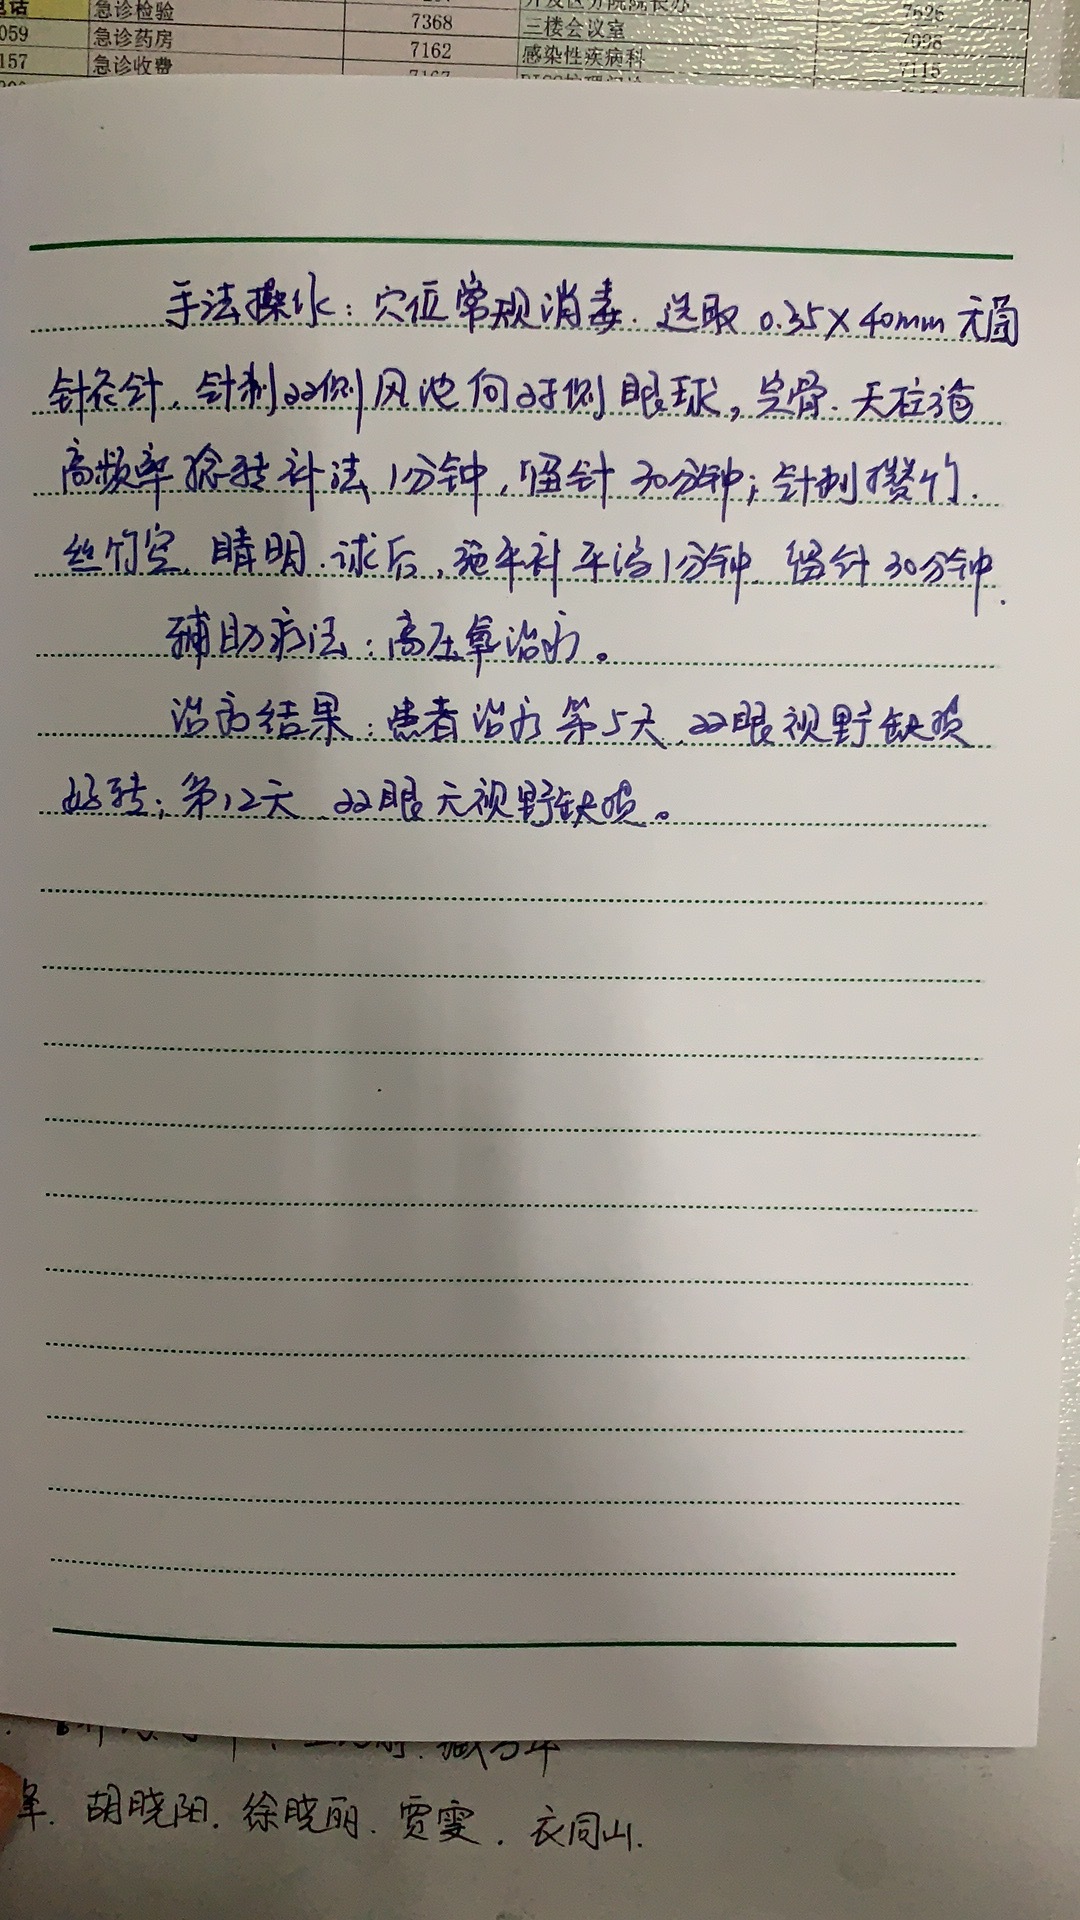 急诊检验
7626
059
急诊药房
7368
三楼会议室
157
急诊收费
7162
感染性疾病科
7115
手法操作：穴位常规消毒．选取 0.35×40mm 无菌
针灸针，针刺双侧风池向对侧眼球，完骨．天柱施
高频率捻转补法 1分钟，留针 30分钟；针刺攒竹．
丝竹空．睛明．球后，施平补平泻1分钟．留针30分钟．
辅助疗法：高压氧治疗。
治疗结果：患者治疗第5天，双眼视野缺损
好转；第12天，双眼无视野缺损。
胡晓阳．徐晓丽．贾雯．衣同山．